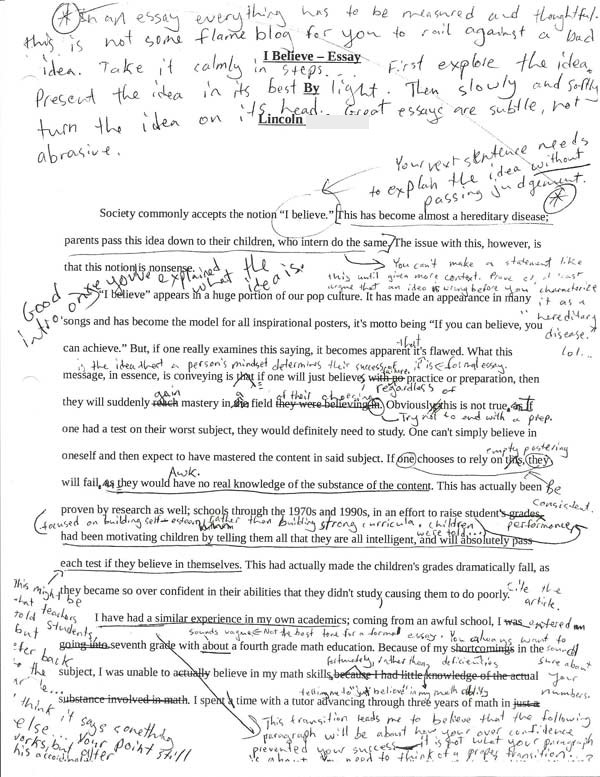 * In an essay everything has to be measured and thoughtful.
this is not some flame blog for you to rail against a bad
idea. Take it calmly in steps... First explore the idea.
Present the idea in its best light. Then slowly and softly
turn the idea on its head. Great essays are subtle, not
abrasive.
I Believe – Essay
By
Lincoln
Your next sentence needs
to explain the idea without
passing judgement.
*
Society commonly accepts the notion “I believe.” This has become almost a hereditary disease;
parents pass this idea down to their children, who intern do the same. The issue with this, however, is
that this notion is nonsense.
You can't make a statement like
this until given more context. Prove or at least
argue that an idea is wrong before you characterize
it as a
"hereditary
disease."
lol...
Good
intro once you've explained
what the
idea is.
“I believe” appears in a huge portion of our pop culture. It has made an appearance in many
songs and has become the model for all inspirational posters, it's motto being “If you can believe, you
can achieve.” But, if one really examines this saying, it becomes apparent it's flawed. What this
that
it is ← formal essay.
is the idea that a person's mindset determines their success or failure.
message, in essence, is conveying is that if one will just believe, with no practice or preparation, then
regardless of
they will suddenly reach mastery in the field they were believing in. Obviously this is not true, as if
gain
of their choosing
Try not to end with a prep.
one had a test on their worst subject, they would definitely need to study. One can't simply believe in
oneself and then expect to have mastered the content in said subject. If one chooses to rely on this, they
empty posturing
will fail, as they would have no real knowledge of the substance of the content. This has actually been
Awk.
Be
consistent.
proven by research as well; schools through the 1970s and 1990s, in an effort to raise student's grades,
performance
focused on building self-esteem rather than building strong curricula. children
were told...
had been motivating children by telling them all that they are all intelligent, and will absolutely pass
each test if they believe in themselves. This had actually made the children's grades dramatically fall, as
they became so over confident in their abilities that they didn't study causing them to do poorly.
Cite the
article.
This might be
what teachers
told students,
but
I have had a similar experience in my own academics; coming from an awful school, I was
going into seventh grade with about a fourth grade math education. Because of my shortcomings in the
sounds vague ← Not the best tone for a formal essay. You always want to
sound
sure about
your
numbers.
deficiencies
subject, I was unable to actually believe in my math skills, because I had little knowledge of the actual
fortunately, rather than
telling me to "just believe" in my math ability
substance involved in math. I spent a time with a tutor advancing through three years of math in just a
This transition leads me to believe that the following
paragraph will be about how your over confidence
prevented your success ← it is not what your paragraph
is about. You need to think of a proper transition...?
I think it says something
else... your point still
works, but